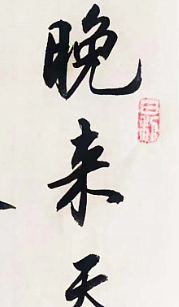 晚来天